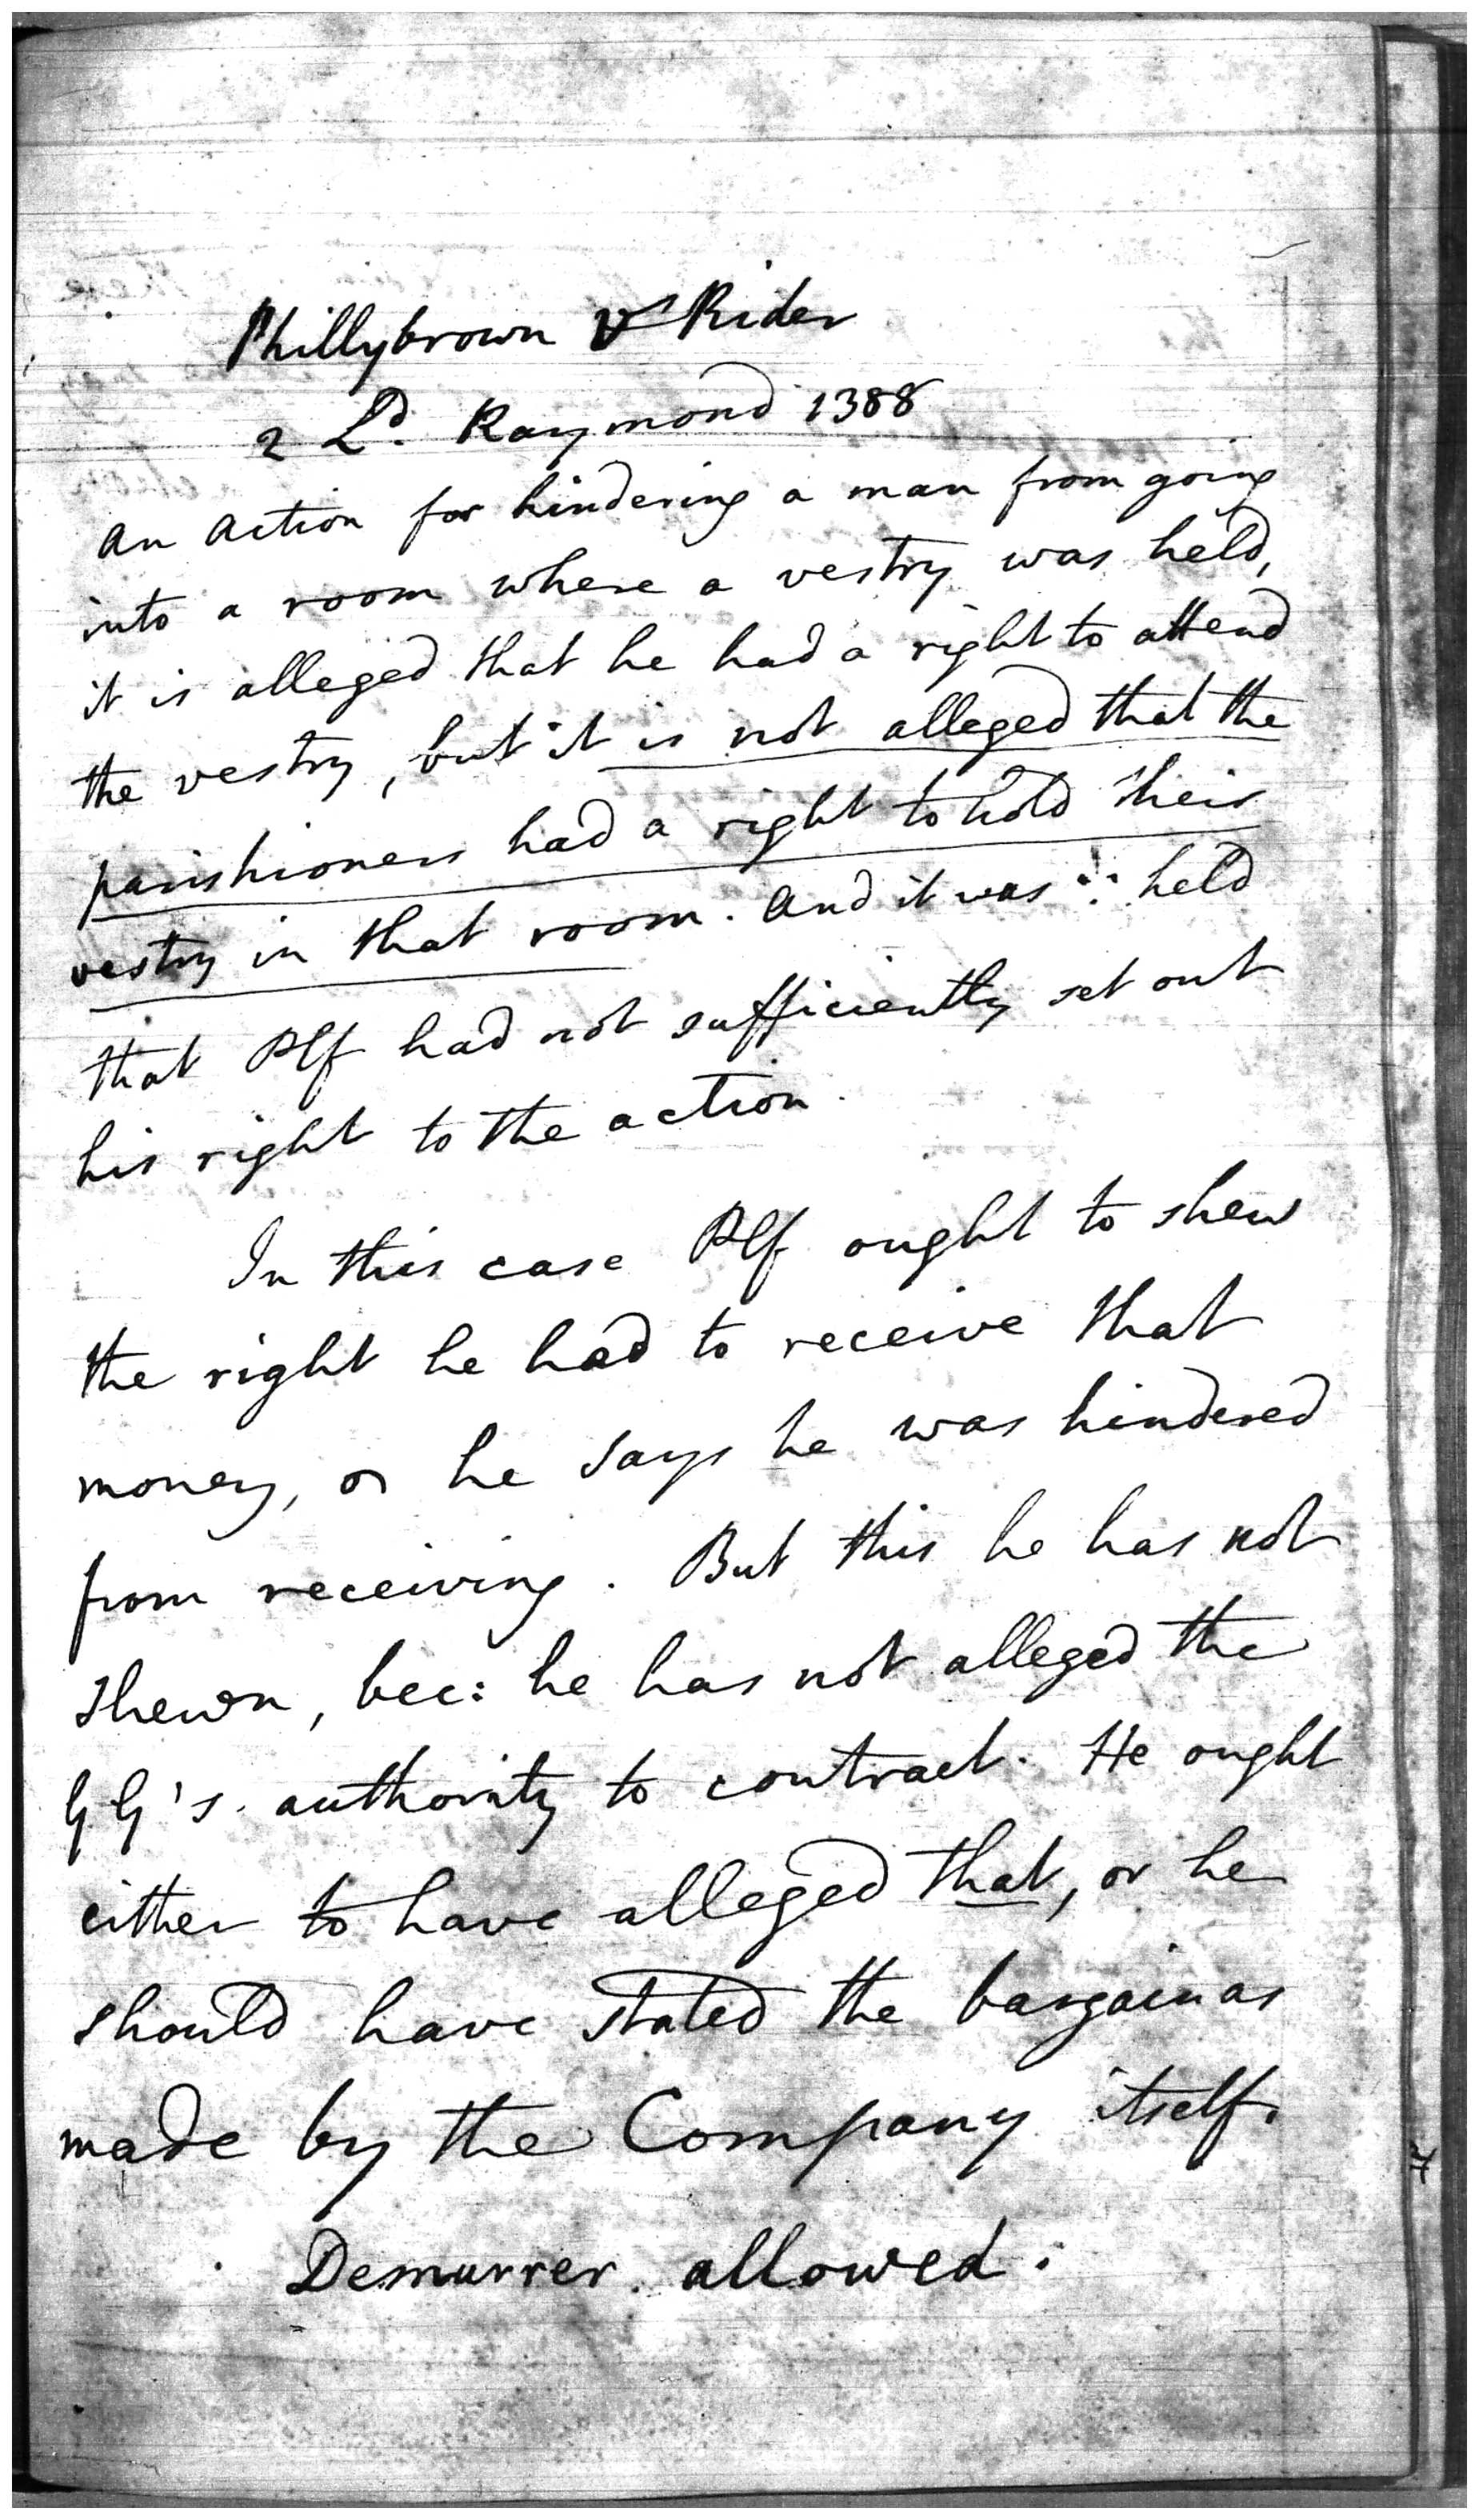 Phillybrown v Rider
2 Ld. Raymond 1388
An action for hindering a man from going
into a room where a vestry was held,
it is alleged that he had a right to attend
the vestry, but it is not alleged that the
parishioners had a right to hold their
vestry in that room. And it was ∴ held
that Plf had not sufficiently set out
his right to the action.
In this case Plf ought to shew
the right he had to receive that
money, as he says he was hindered
from receiving. But this he has not
shewn, bec: he has not alleged the
G.G's. authority to contract. He ought
either to have alleged that, or he
should have stated the bargain as
made by the Company itself.
Demurrer allowed.